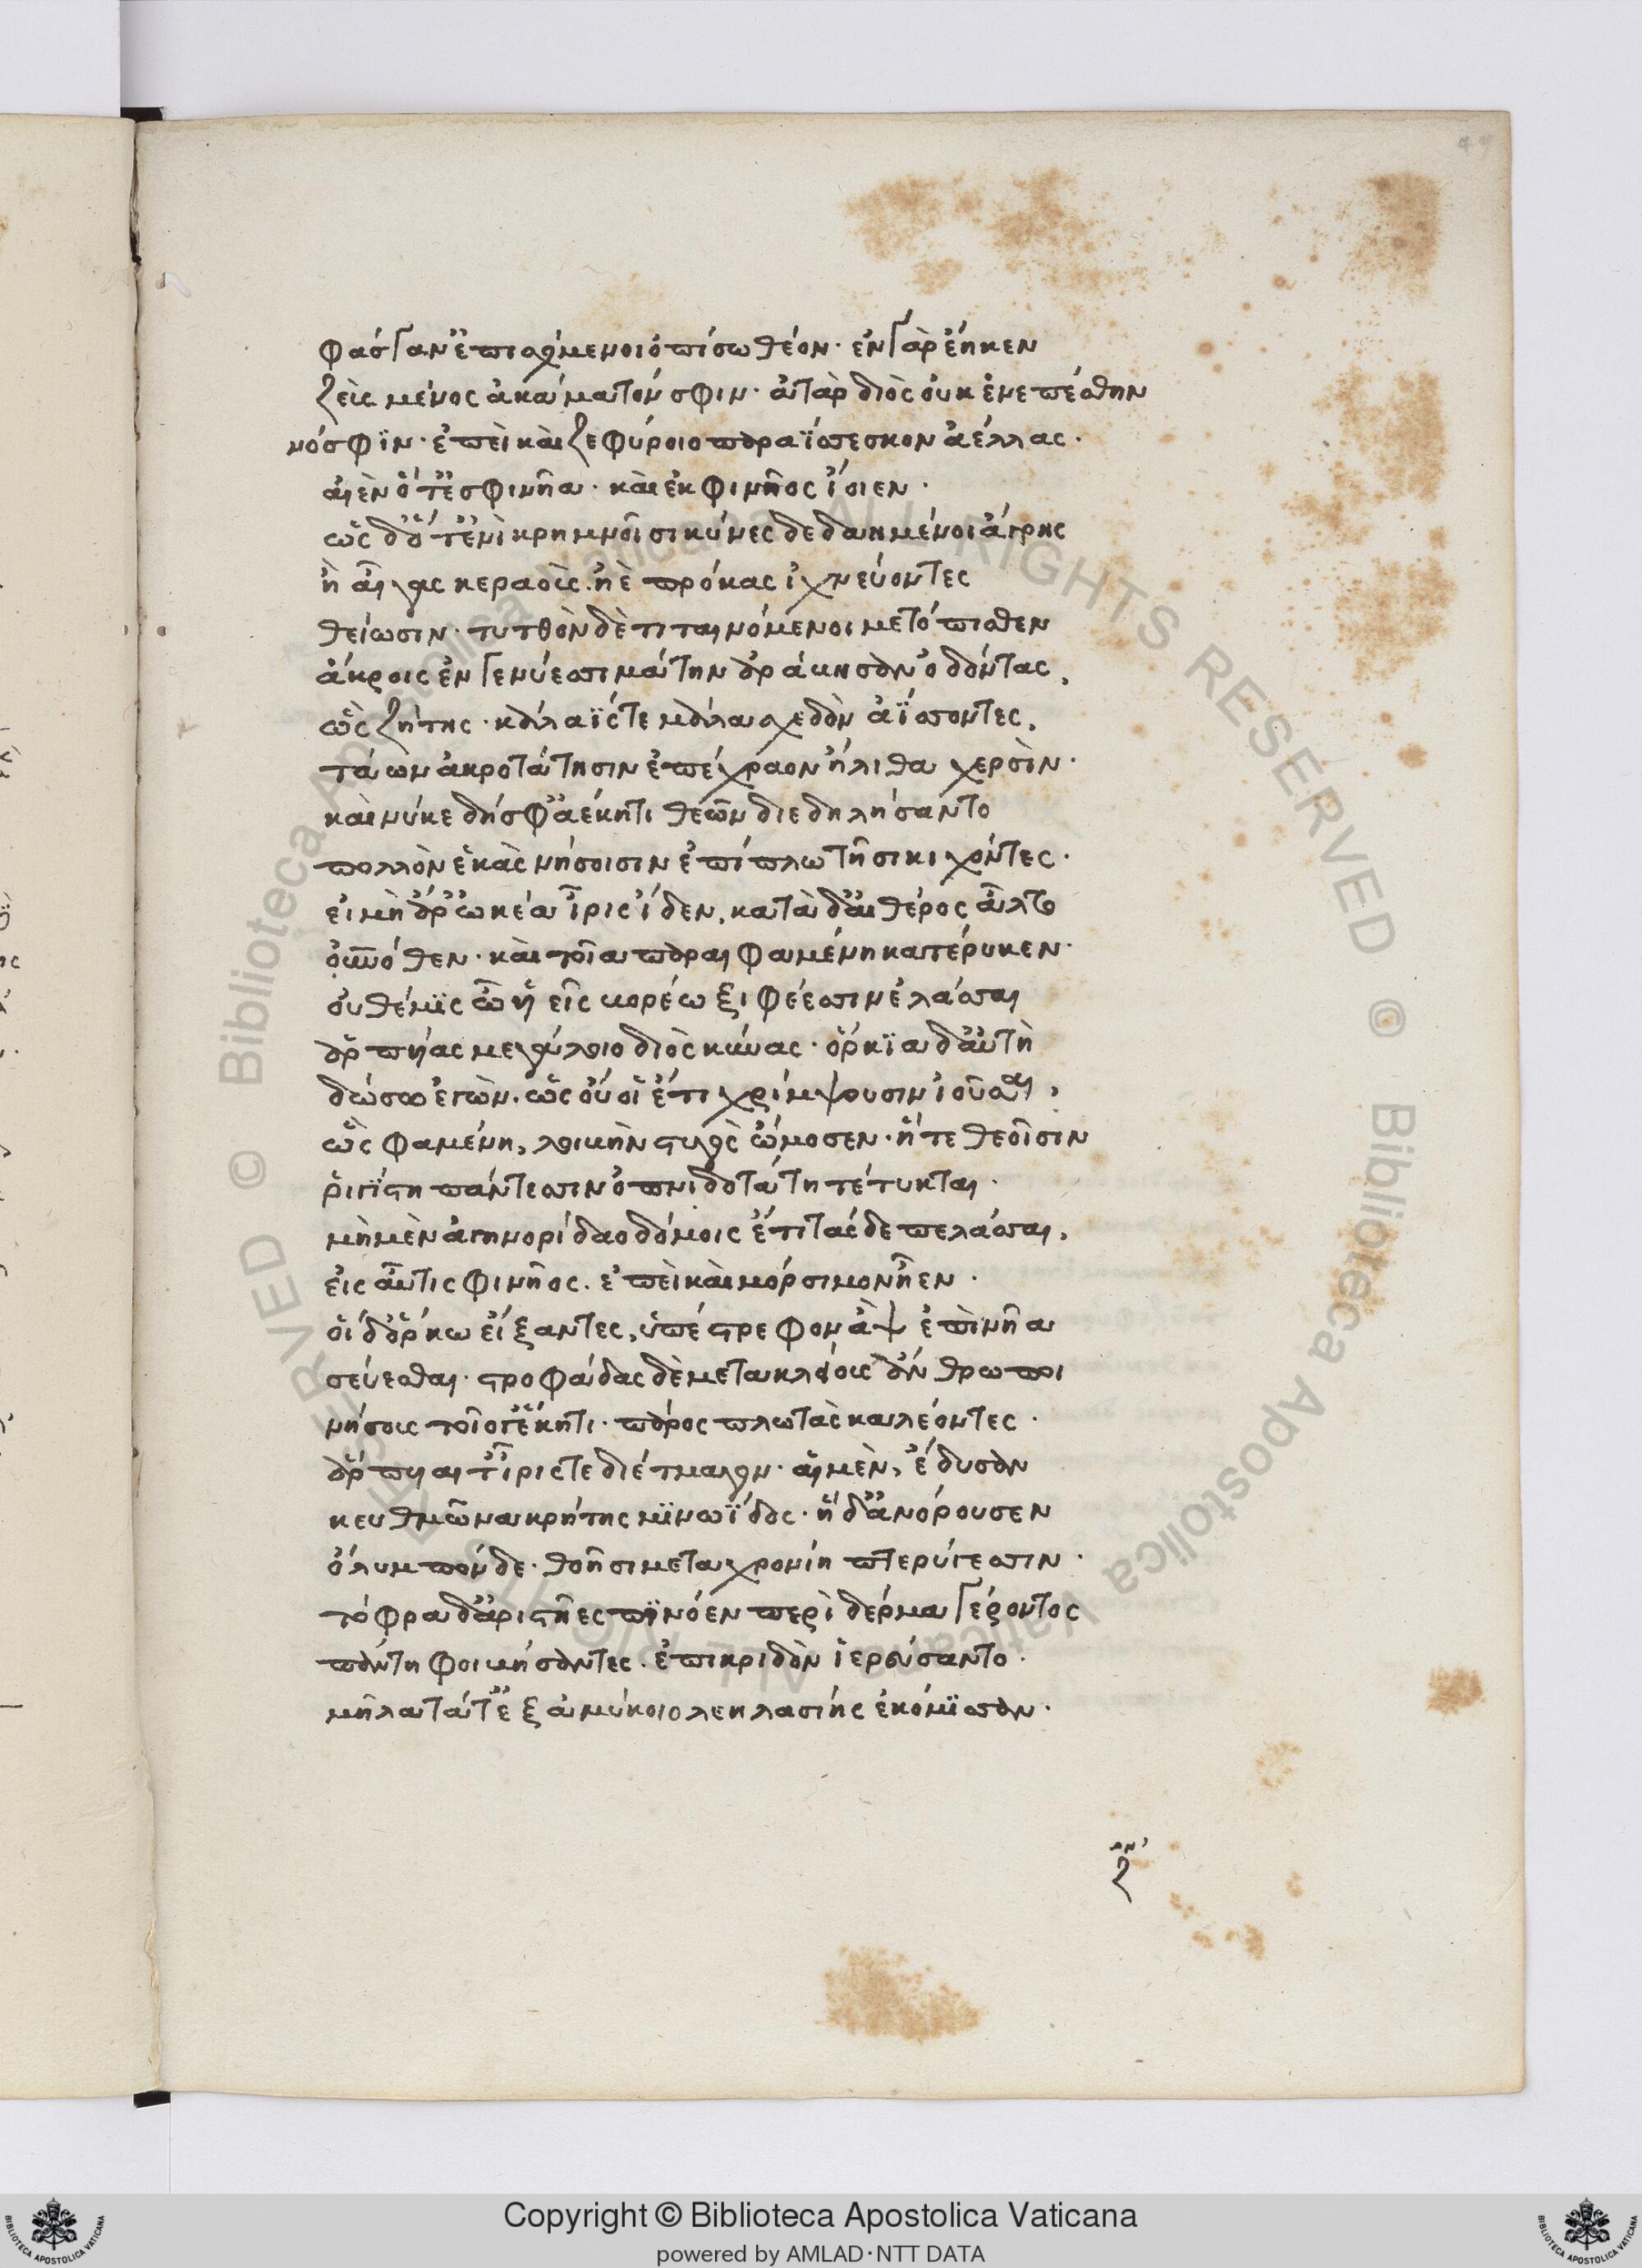 φάσγαν' ἐπισχόμενοι ὀπίσω θέον· ἐν γὰρ ἕηκεν
ζεὺς μένος ἀκάματόν σφιν· ἀτὰρ διὸς οὔ κεν ἑπέσθην
νόσφϊν· ἐπεὶ καὶ ζεφύροιο παραΐσσεσκον ἀέλλας.
αἰὲν ὅτ' ἐς φινῆα· καὶ ἐκ φινῆος ἴοιεν.
ὡς δ' ὅτ' ἐνὶ κρημνοῖσι κύνες δεδαημένοι ἄγρης
ἢ αἶγας κεραοὺς· ἠὲ πρόκας ἰχνεύοντες
θείωσιν· τυτθὸν δὲ τιταινόμενοι μετόπισθεν
ἄκροις ἐν γενύεσσι μάτην ἀράβησαν ὀδόντας,
ὣς ζήτης· κάλαΐς τε μάλα σχεδὸν ἀΐσσοντες,
τάων ἀκροτάτησιν ἐπέχραον ἤλιθα χερσὶν·
καί νύ κε δή σφ' ἀέκητι θεῶν διεδηλήσαντο
πολλὸν ἑκὰς νήσοισιν ἐπὶ πλωτῆσι κιχόντες·
εἰ μὴ ἄρ' ὠκέα ἶρις ἴδεν, κατὰ δ' αἰθέρος ἆλτο
οὐρανόθεν· καὶ τοῖα παραιφαμένη κατέρυκεν·
οὐ θέμις ὦ υἱεῖς βορέω ξιφέεσσιν ἐλάσσαι
ἁρπυίας μεγάλοιο διὸς κύνας· ὅρκια δ' αὐτὴ
δώσω ἐγὼν, ὡς οὔ οἱ ἔτι χρίμψουσιν ἰοῦσαι,
ὣς φαμένη, λοιβὴν στυγὸς ὤμοσεν· ἥτε θεοῖσιν
ῥιγίστη πάντεσσιν ὀπιδνοτάτη τέτυκται.
μὴ μὲν ἀγηνορίδαο δόμοις ἔτι τάς δε πελάσσαι,
εἰς αὖτις φινῆος· ἐπεὶ καὶ μόρσιμον ἦεν.
οἱ δ' ὅρκω εἴξαντες, ὑπέστρεφον ἂψ ἐπὶ νῆα
σεύεσθαι· στροφάδας δὲ μετακλείουσ' ἄνθρωποι
νήσους τοῖό γ' ἕκητι· πάρος πλωτὰς καλέοντες·
ἅρπυιαι τ' ἶρίς τε διέτμαγον· αἱ μὲν, ἔδυσαν
κευθμῶνα κρήτης μινωΐδος· ἡ δ' ἀνόρουσεν
ὄλυμπόνδε· θοῆσι μεταχρονίη πτερύγεσσιν·
τόφρα δ' ἀριστῆες πινόεν περὶ δέρμα γέροντος
πάντη φοιβήσαντες· ἐπικριδὸν ἱερεύσαντο·
μῆλα τά τ' ἐξ ἀμύκοιο λεηλασίης ἐκόμισσαν·